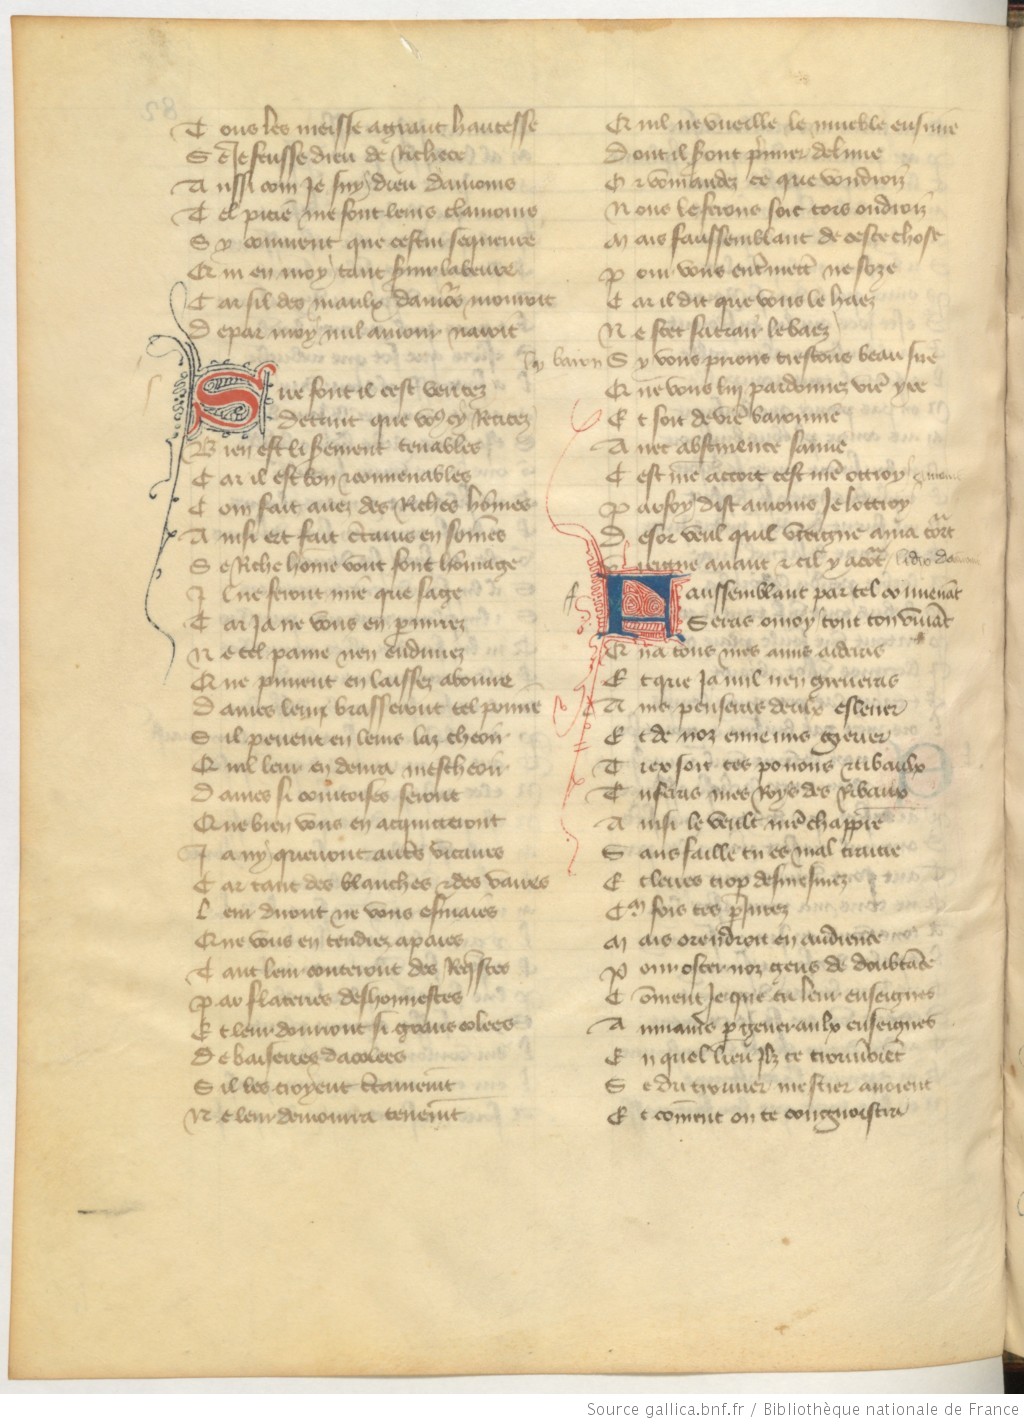 Tous les meisse a grant haultesse
Se je feusse dieu de Richece
Aussi com Je suy dieu damours
Tel pitie me font leurs clamours
Sy convient que cestui sequeure
Qui en moy tant servir labeure
Car sil des maulx damer mouroit
De par moy nul amour nauroit
Sire font il cest veritez
De tant que vo9 cy Recitez
Bien est li serement tenables
Car il est bon et convenables
Com fait avez des Riches hommes
Ainsi ert fait certains en sommes
Se Riche homme vont font hommage
Il ne seront mie que sage
Car Ja ne vous en periurez
Ne tel paine nen endurez
Que puissent en laissez aboivre
Dames leur brasseront tel poivre
Sil peuent en leurs laz cheoir
Quil leur en devra mescheoir
Dames si courtoises seront
Que bien vous en acquiteront
Ja ny querront autres vicaires
Car tant des blanches et des vaires
Leur diront ne vous esmaies
Que vous en tendrez a paies
Tant leur conteront des Requestes
Par flateries deshonnestes
Et leur donrront si grans colees
De baiseries dacolees
Sil les croyent certainement
Ne leur demourra tenement
Qil ne vueille le mueble ensuivre
Dont il sont premier delivre
Or commandez ce que vouldroiz
Nous le ferons soit tors ou droiz
Mais faussemblant de ceste chose
Pour vous entremettre ne sose
Car il dit que vous le haez
Ne scet sa traiz le baez
ly baron
Sy vous prions trestous beau sire
Que vous luy pardonnez vre yre
Et soit de vre baronnie
Avec abstinence samie
Cest nre accort cest nre ottroy
Par foy dist amours Je lottroy
Desor veul quil viegne a ma court
Viegne avant et cil y acourt
Faussemblant par tel convenant
Seras o moy tout ton vivant
Que a tous mes amis aidaras
Et que Ja nul nen greveras
Ains penseras deulx eslever
Et de noz ennemis grever
Tiex soit ces povoirs et ribaulx
Tu seras mes Roys des Ribaux
Ainsi le veult nre chappitre
Sans faille tu es mal traitre
Et lerres trop desmesurez
Cm fois tes periurez
Mais orendroit en audience
Pour oster noz gens de doubtance
Comment Je que tu leur enseignes
Au mains par generaulx enseignes
En quel lieu Ilz te trouveroient
Se du trouver mestier avoient
Et comment on te congnoistra